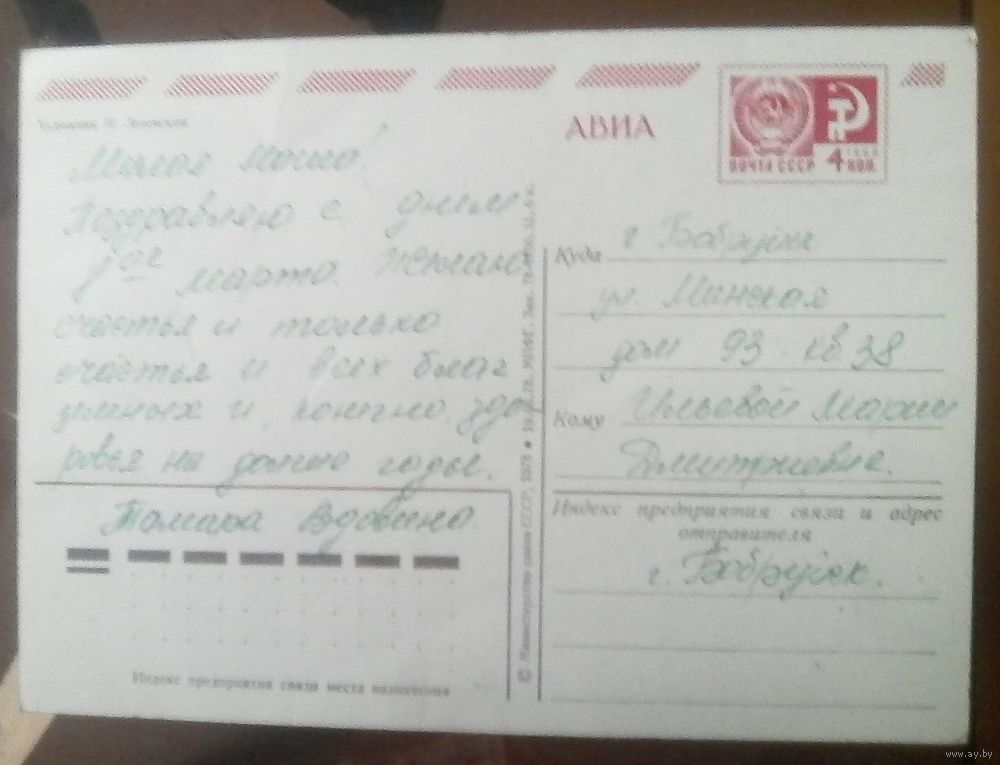 Художник
АВИА
ПОЧТА СССР
4 КОП.
Милая Маша!
Поздравляю с днём
8ое марта. Желаю
счастья и только
счастья и всех благ
земных и, конечно, здо
ровья на долгие годы.
Тамара Вдовина
Индекс предприятия связи места назначения
© Министерство связи СССР, 1978
Куда г Бобруйск
ул. Минская
дом 93 кв 38
Кому Ильевой Марии
Дмитриевне.
Индекс предприятия связи и адрес
отправителя
г. Бобруйск.
www.ay.by